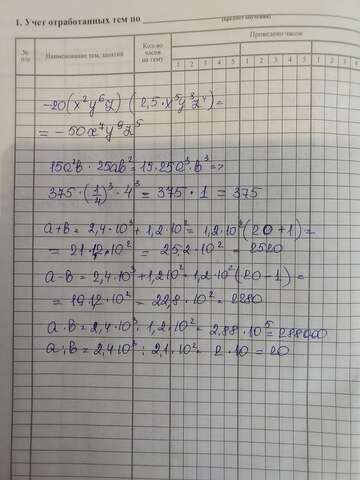 1. Учет отработанных тем по
(предмет обучения)
№ п/п
Наименование тем, занятий
Кол-во часов на тему
Проведено часов
1 2 3 4 5 6 1 2 3 4 5 6 1 2 3 4 5
-20(x²y⁶z) (2,5·x⁵y³z⁴)=
= -50x⁷y⁹z⁵
15a²b · 25ab² = 15·25a³·b³ =>
375·(1/4)³·4³ = 375·1 = 375
a+b = 2,4·10³ + 1,2·10² = 1,2·10²(20+1) =
= 21·12·10² = 25,2·10² = 2520
a-b = 2,4·10³ - 1,2·10² = 1,2·10²(20-1) =
= 19·12·10² = 22,8·10² = 2280
a·b = 2,4·10³·1,2·10² = 2,88·10⁵ = 288000
a:b = 2,4·10³ : 2,1·10² = 2·10 = 20